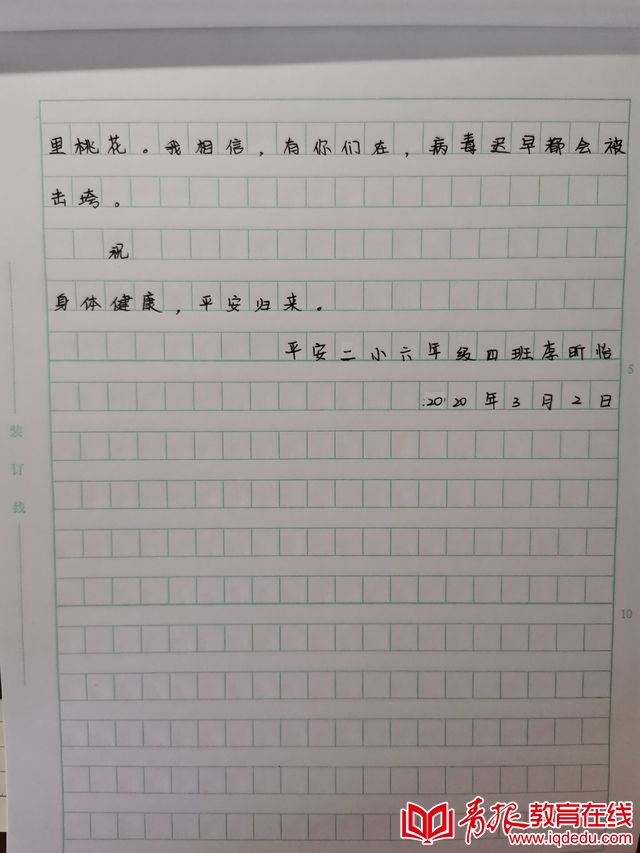 里桃花。我相信,有你们在,病毒迟早都会被
击垮。
祝
身体健康,平安归来。
平安二小六年级四班李昕怡
2020年3月2日
5
装订线
10
青报教育在线
www.iqdedu.com